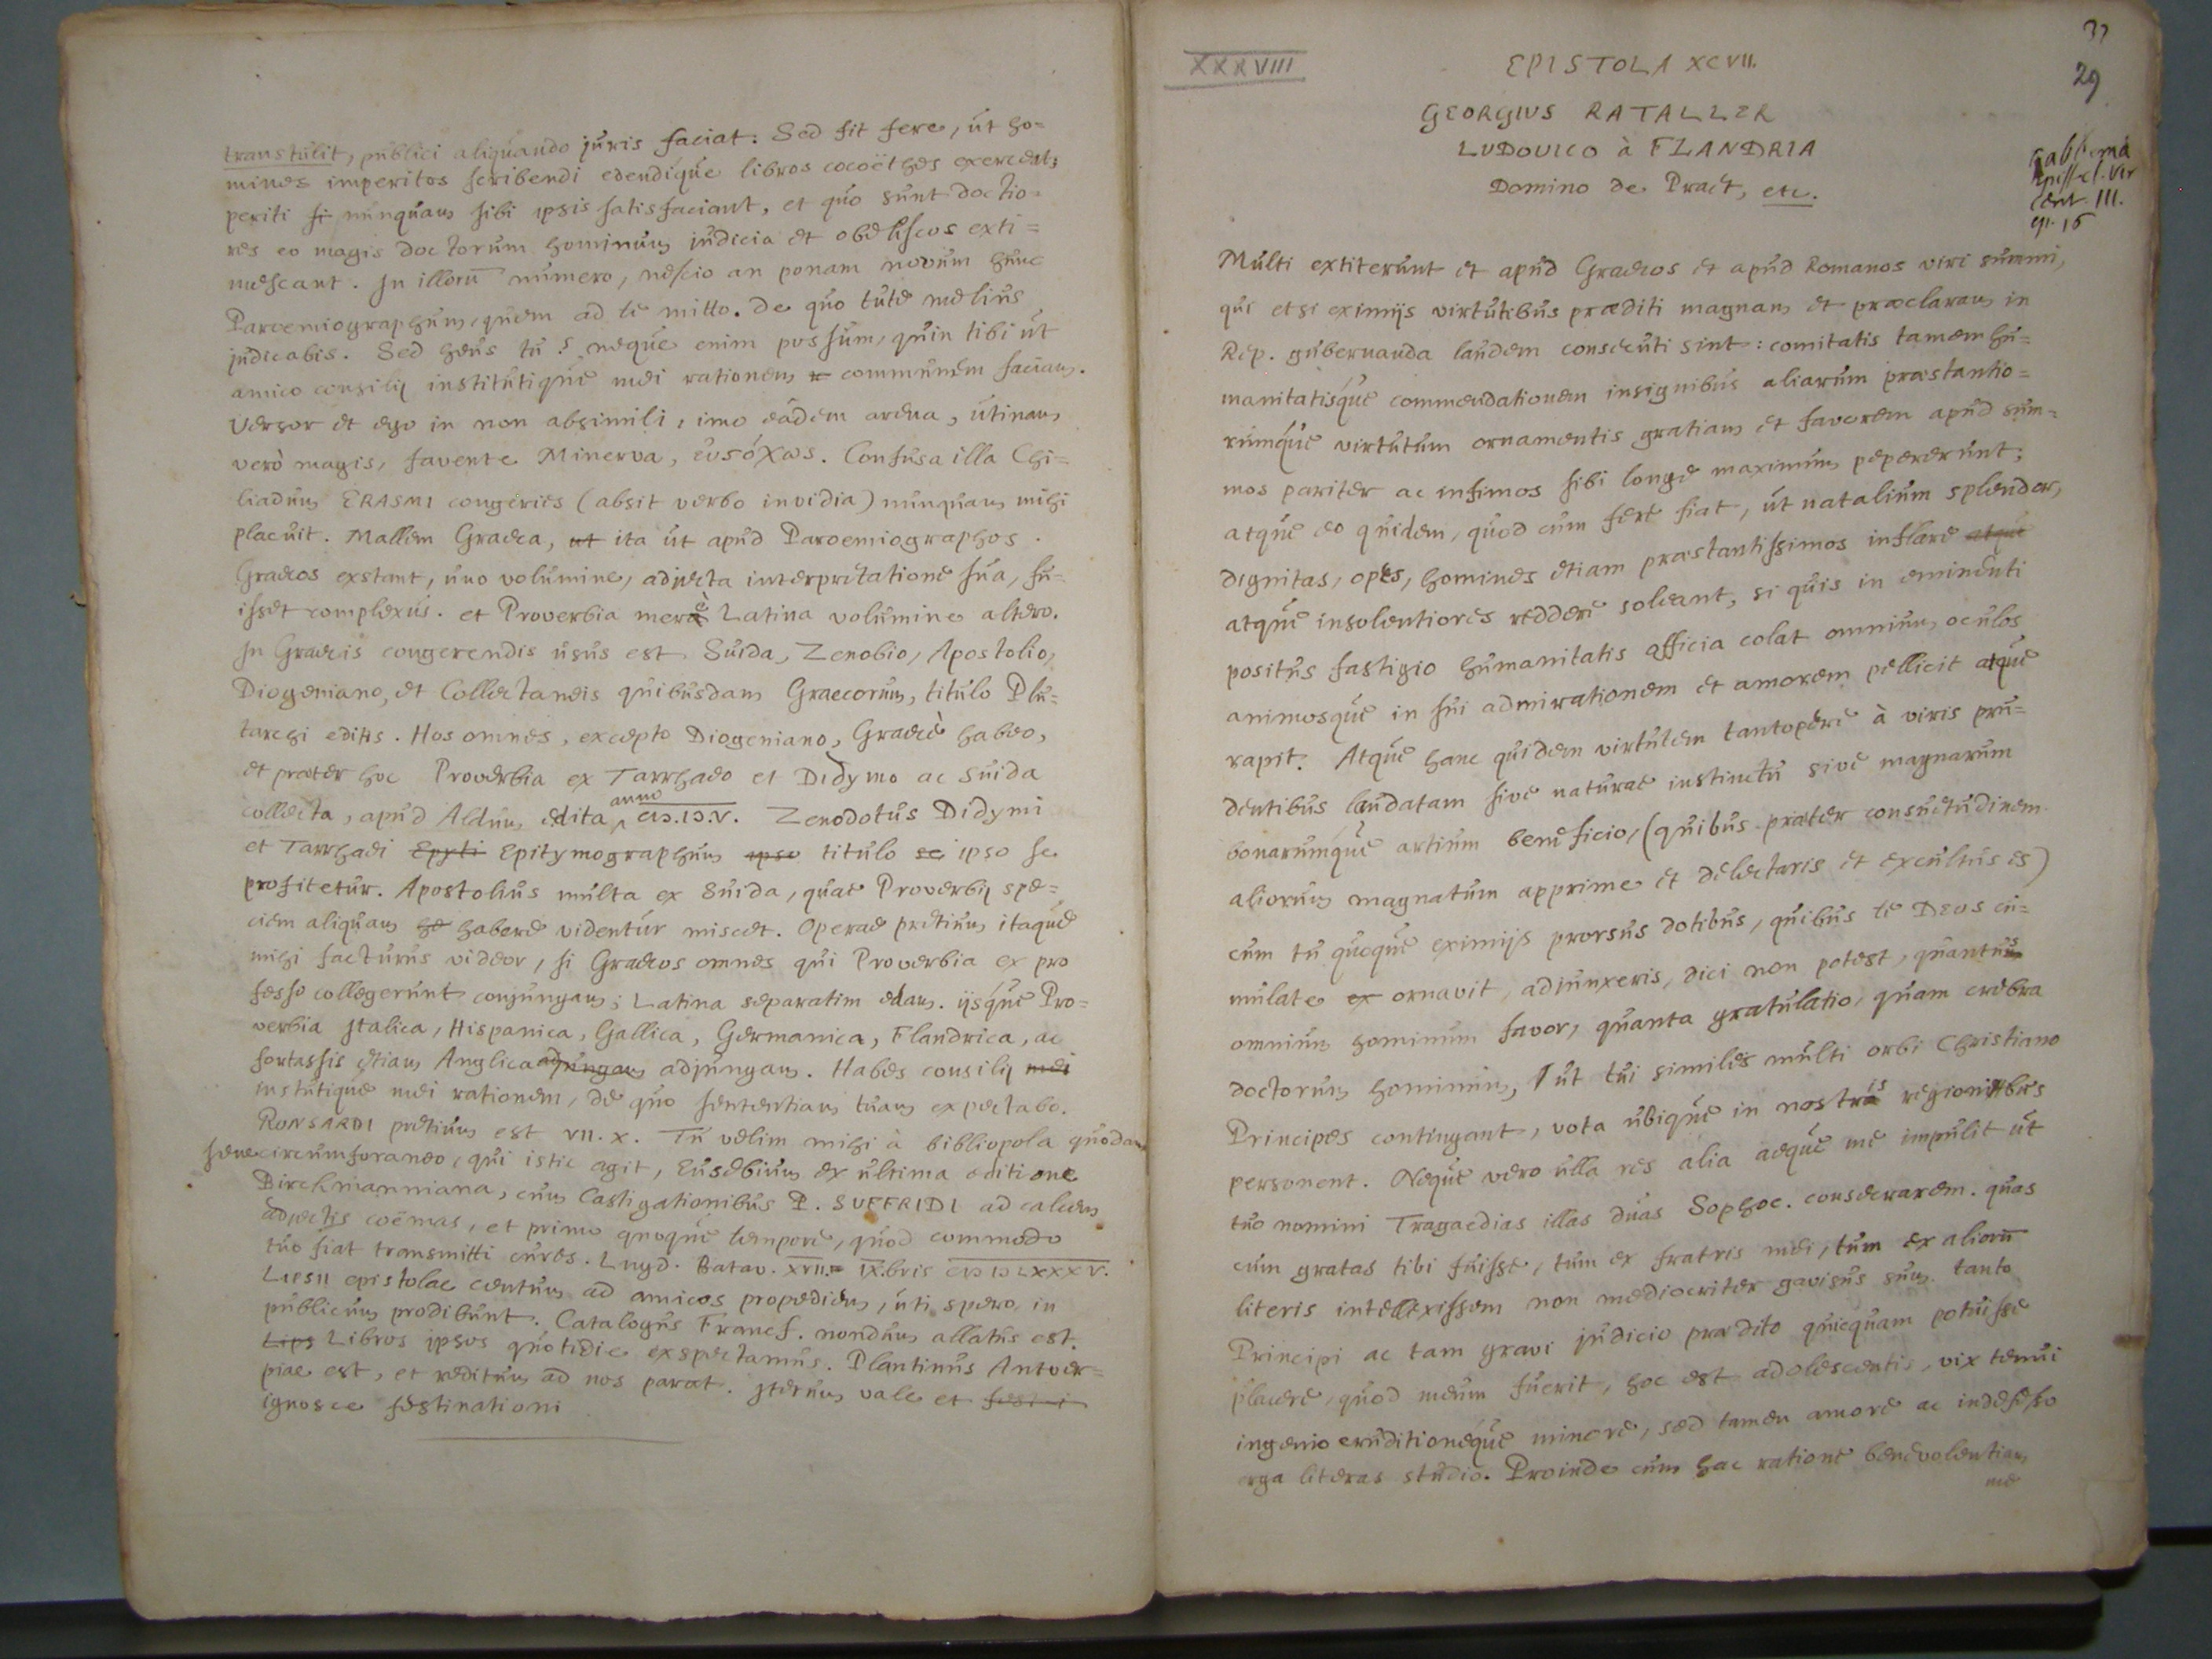 transtulit, publici aliquando juris faciat: Sed fit fere, ut ho=
mines imperitos scribendi edendique libros cocoëthes exerceat;
periti nunquam sibi ipsis satisfaciant, et quo sunt doctio=
res eo magis doctorum hominum judicia et obeliscos exti=
mescant. In illorū numero, nescio an ponam novum hunc
Paroemiographum, quem ad te mitto. De quo tute melius
judicabis. Sed heus tu! neque enim possum, quin tibi ut
amico consilij institutique mei rationem communem faciam.
Versor et ego in non absimili, imo eâdem arena, utinam
verò magis, favente Minerva, Confusa illa Chi=
liadum ERASMI congeries (absit verbo invidia) nunquam mihi
placuit. Mallem Graeca, ut ita ut apud Paroemiographos
Graecos exstant, uno volumine, adjecta interpretatione sua, fu=
isset complexus. et Proverbia merè Latina volumine altero.
In Graecis congerendis usus est Suida, Zenobio, Apostolio,
Diogeniano, et Collectaneis quibusdam Graecorum, titulo Plu=
tarchi editis. Hos omnes, excepto Diogeniano, Graecè habeo,
et praeter hoc Proverbia ex Tarrhaeo et Didymo ac Suida
collecta, apud Aldum edita anno CIↃ.IↃ.V. Zenodotus Didymi
et Tarrhaei Epyti Epitymographum ipso titulo se ipso se
profitetur. Apostolius multa ex Suida, quae Proverbij spe=
ciem aliquam he habere videntur miscet. Operae pretium itaque
mihi facturus videor, si Graecos omnes qui Proverbia ex pro
fesso collegerunt conjungam; Latina separatim edam. ijsque Pro=
verbia Italica, Hispanica, Gallica, Germanica, Flandrica, ac
fortassis etiam Anglica adjungam adjungam. Habes consilij mei
institutique mei rationem, de quo sententiam tuam expectabo.
RONSARDI pretium est VII. X. Tu velim mihi à bibliopola quodam
sene circumforaneo, qui istic agit, Eusebium ex ultima editione
Birckmanniana, cum Castigationibus P. SUFFRIDI ad calcem
adjectis coëmas, et primo quoque tempore, quod commodo
tuo fiat transmitti cures. Lugd. Batav. XVII. IX.bris CIↃ IↃ LXXXV.
LIPSII epistolae centum ad amicos propediem, uti spero, in
publicum prodibunt. Catalogus Francf. nondum allatus est.
Lips Libros ipsos quotidie exspectamus. Plantinus Antver=
piae est, et reditum ad nos parat. Iterum vale et festi
ignosce festinationi
XXXVIII
EPISTOLA XCVII.
GEORGIUS RATALLER
LUDOVICO à FLANDRIA
Domino de Praet, etc.
29
Cent. III.
ep. 16
Multi extiterunt et apud Graecos et apud Romanos viri summi,
qui etsi eximijs virtutibus praediti magnam et praeclaram in
Rep. gubernanda laudem consecuti sint: comitatis tamen hu=
manitatisque commendationem insignibus aliarum praestantio=
rumque virtutum ornamentis gratiam et favorem apud sum=
mos pariter ac infimos sibi longe maximum pepererunt;
atque eo quidem, quod cum fere fiat, ut natalium splendor,
dignitas, opes, homines etiam praestantissimos inflare atque
atque insolentiores reddere soleant, si quis in eminenti
positus fastigio humanitatis officia colat omnium oculos
animosque in sui admirationem et amorem pellicit atque
rapit. Atque hanc quidem virtutem tantopere à viris pru=
dentibus laudatam sive naturae instinctu sive magnarum
bonarumque artium beneficio, (quibus praeter consuetudinem
aliorum magnatum apprime et delectaris et excultus es)
cum tu quoque eximijs prorsus dotibus, quibus te Deus cu=
mulate ex ornavit, adjunxeris, dici non potest, quantus
omnium hominum favor, quanta gratulatio, quam crebra
doctorum hominum, ut tui similes multi orbi Christiano
Principes contingant, vota ubique in nostris regionibus
personent. Neque vero ulla res alia aeque me impulit ut
tuo nomini Tragaedias illas duas Sophoc. consecrarem. quas
cum gratas tibi fuisse, tum ex fratris mei, tum ex aliorū
literis intellexissem non mediocriter gavisus sum tanto
Principi ac tam gravi judicio praedito quicquam potuisse
placere, quod meum fuerit, hoc est adolescentis, vix tenui
ingenio eruditioneque minore, sed tamen amore ac indefesso
erga literas studio. Proinde cum hac ratione benevolentiam
me